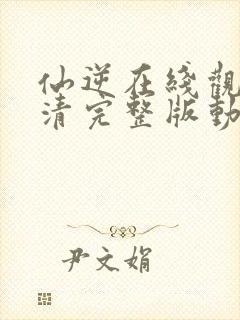 仙逆在线觀
清完整版動
尹文娟